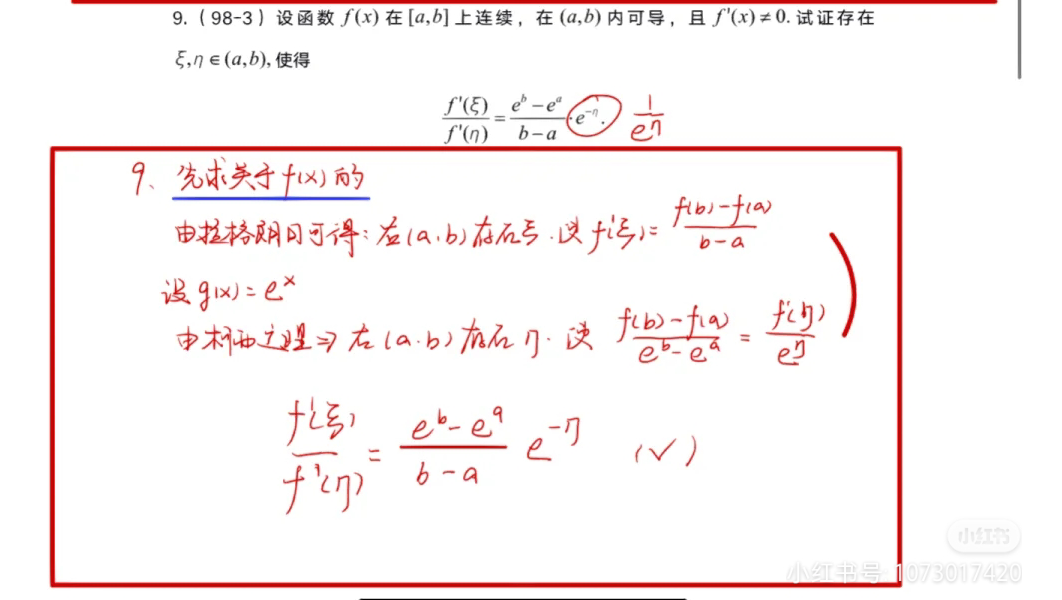 9.（98-3）设函数 f(x) 在 [a,b] 上连续，在 (a,b) 内可导，且 f'(x)≠0. 试证存在
ξ,η∈(a,b), 使得
f'(ξ)/f'(η) = (e^b−e^a)/(b−a)·e^{−η}. 1/e^η
9、先求关于f(x)的
由拉格朗日可得：在(a,b)存在ξ.使f'(ξ)=(f(b)−f(a))/(b−a)
设g(x)=e^x
由柯西定理⇒在(a.b)存在η.使 (f(b)−f(a))/(e^b−e^a)=f'(η)/e^η
f'(ξ)/f'(η)=(e^b−e^a)/(b−a) e^{−η} (√)
小红书
小红书号 1073017420